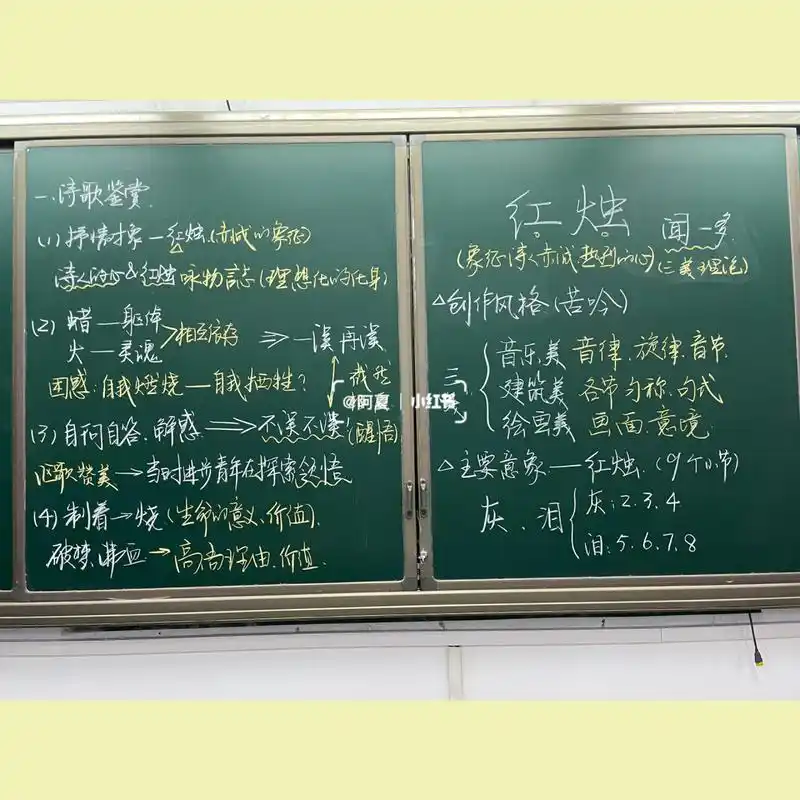 一.诗歌鉴赏
(1) 抒情对象—红烛.(赤诚的象征)
诗人的心&红烛 咏物言志 (理想化的化身)
(2) 蜡—躯体
火—灵魂
相互依存 ⇒ 一误再误
困惑:自我燃烧—自我牺牲?
(3) 自问自答.解惑 ⇒ 不误不误!(醒悟)
讴歌赞美→当时进步青年在探索领悟
(4) 制着→烧 (生命的意义、价值).
破禁、沸血→高高理由.价值.
@阿夏 | 小红书
红烛 闻一多
(象征诗人赤诚热烈的心) (三美理论)
△创作风格(苦吟)
三美
音乐美 音律.旋律.音节.
建筑美 各节匀称.句式
绘画美 画面.意境.
△主要意象—红烛.(9个小节)
灰、泪
灰:2.3.4
泪:5.6.7.8